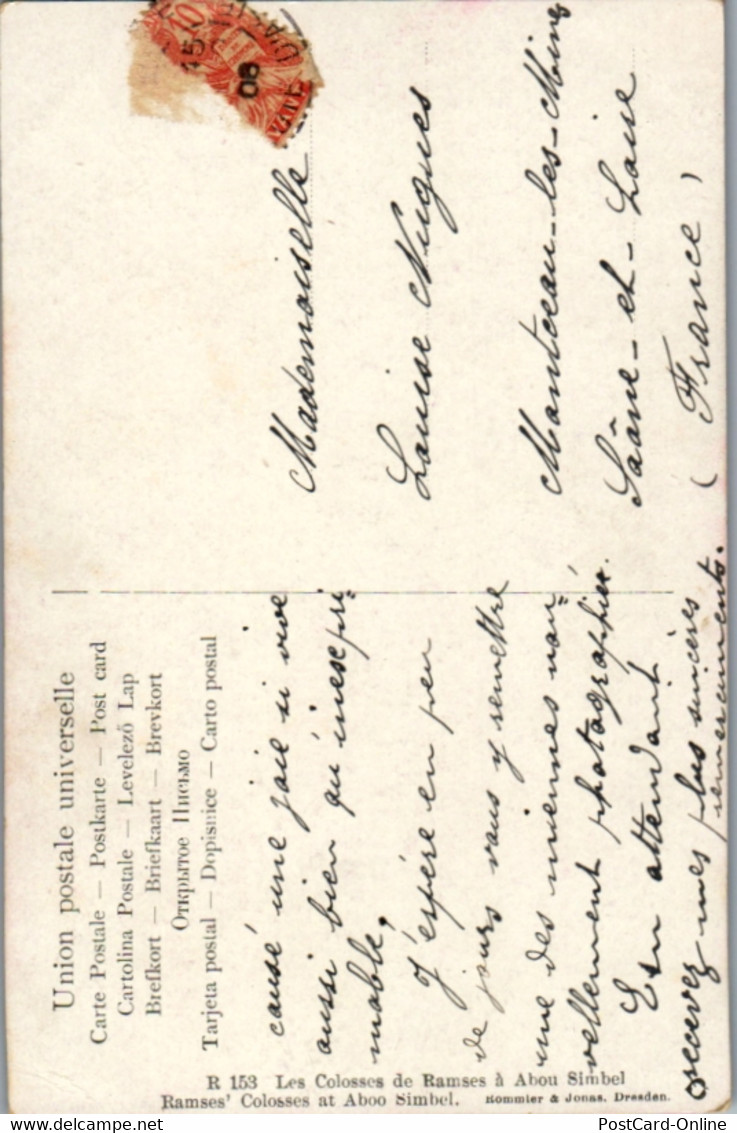 Union postale universelle
Carte Postale — Postkarte — Post card
Cartolina Postale — Levelezö Lap
Brefkort — Briefkaart — Brevkort
Открытое Письмо
Tarjeta postal — Dopisnice — Carto postal
causé une joie si vive
aussi bien qu'inexpri
mable.
J'espère en peu
de jours vous y remettre
une des miennes nou=
vellement photographiée.
En attendant
recevez mes plus sincères
remerciments.
Mademoiselle
Louise Nugues
Montceau-les-Mines
Saône-et-Loire
(France)
10
15
08
R 153 Les Colosses de Ramses à Abou Simbel
Ramses' Colosses at Aboo Simbel. Rommler & Jonas. Dresden.
PostCard-Online